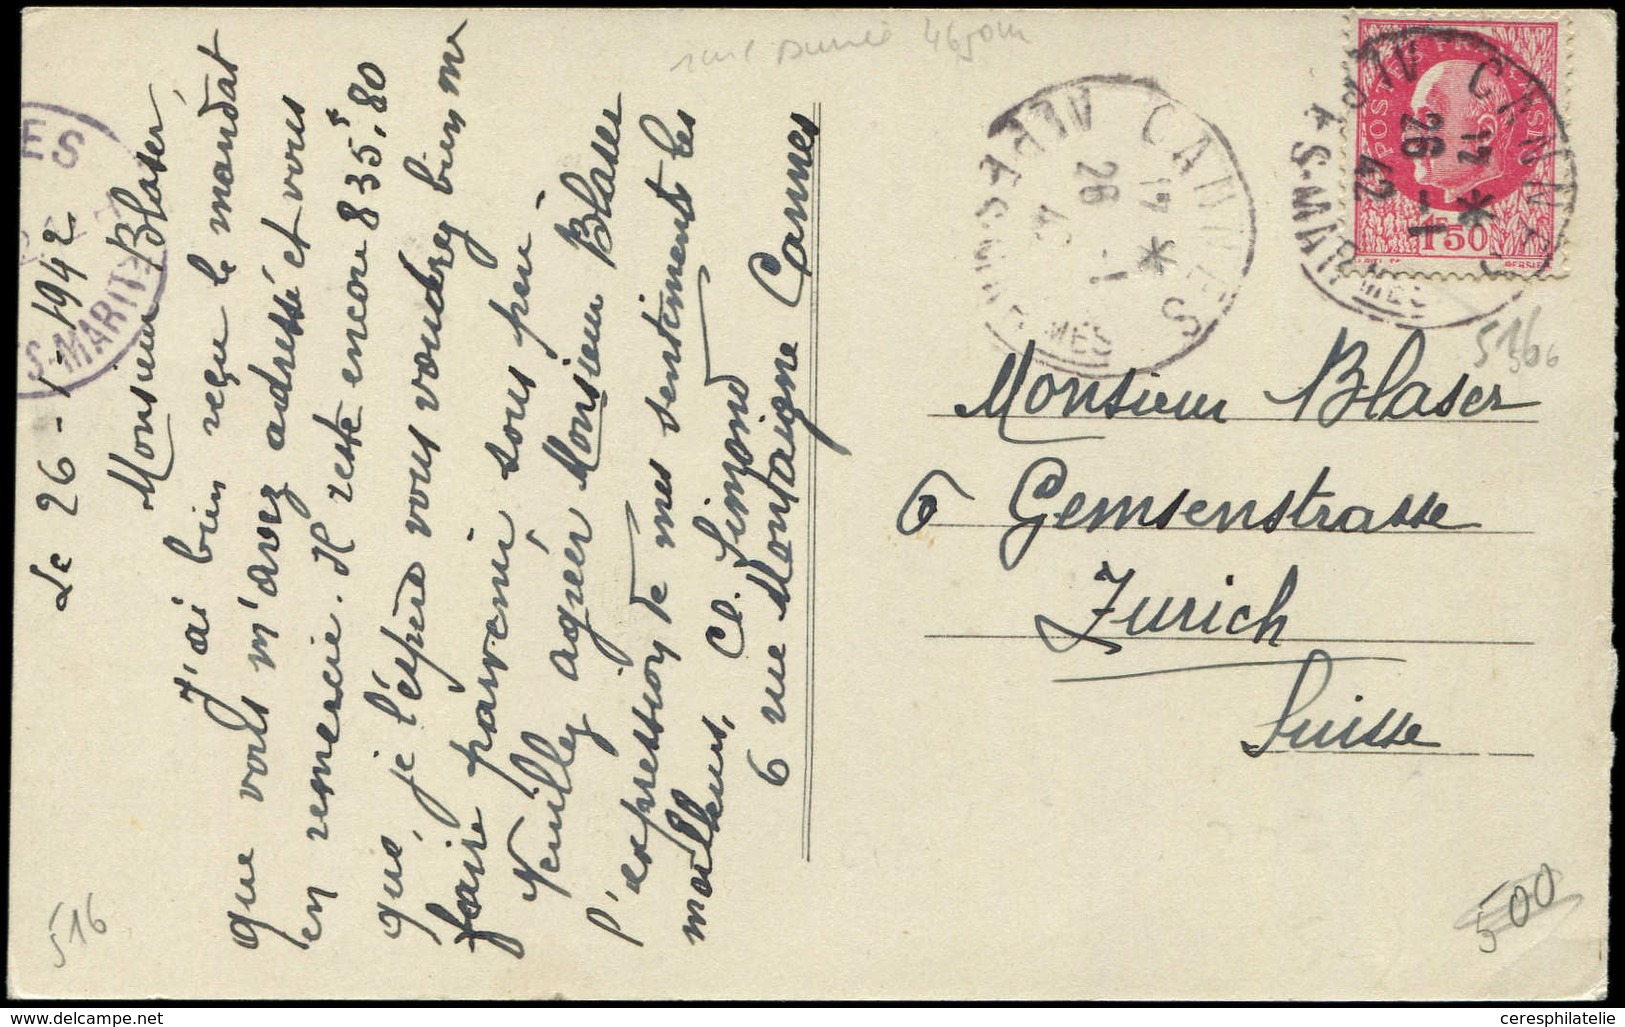 Le 26-1-1942
Monsieur Blaser,
J'ai bien reçu le mandat
que vous m'avez adressé et vous
en remercie. Il reste encore 835F,80
que, je l'espère vous voudrez bien me
faire parvenir sous peu
Veuillez agréer Monsieur Blaser
l'expression de mes sentiments les
meilleurs, Cl. Simond
6 rue Montaigne Cannes
ES
S-MARIT
46 jours
CANNES
17 *
26 -1
4
ALPES-MARITIMES
POSTES FRANÇAISES
1F50
CANNES
17 *
26 -1
42
ALPES-MARITIMES
516
Monsieur Blaser
6 Gemsenstrasse
Zurich
Suisse
516
500
www.delcampe.net
ceresphilatelie